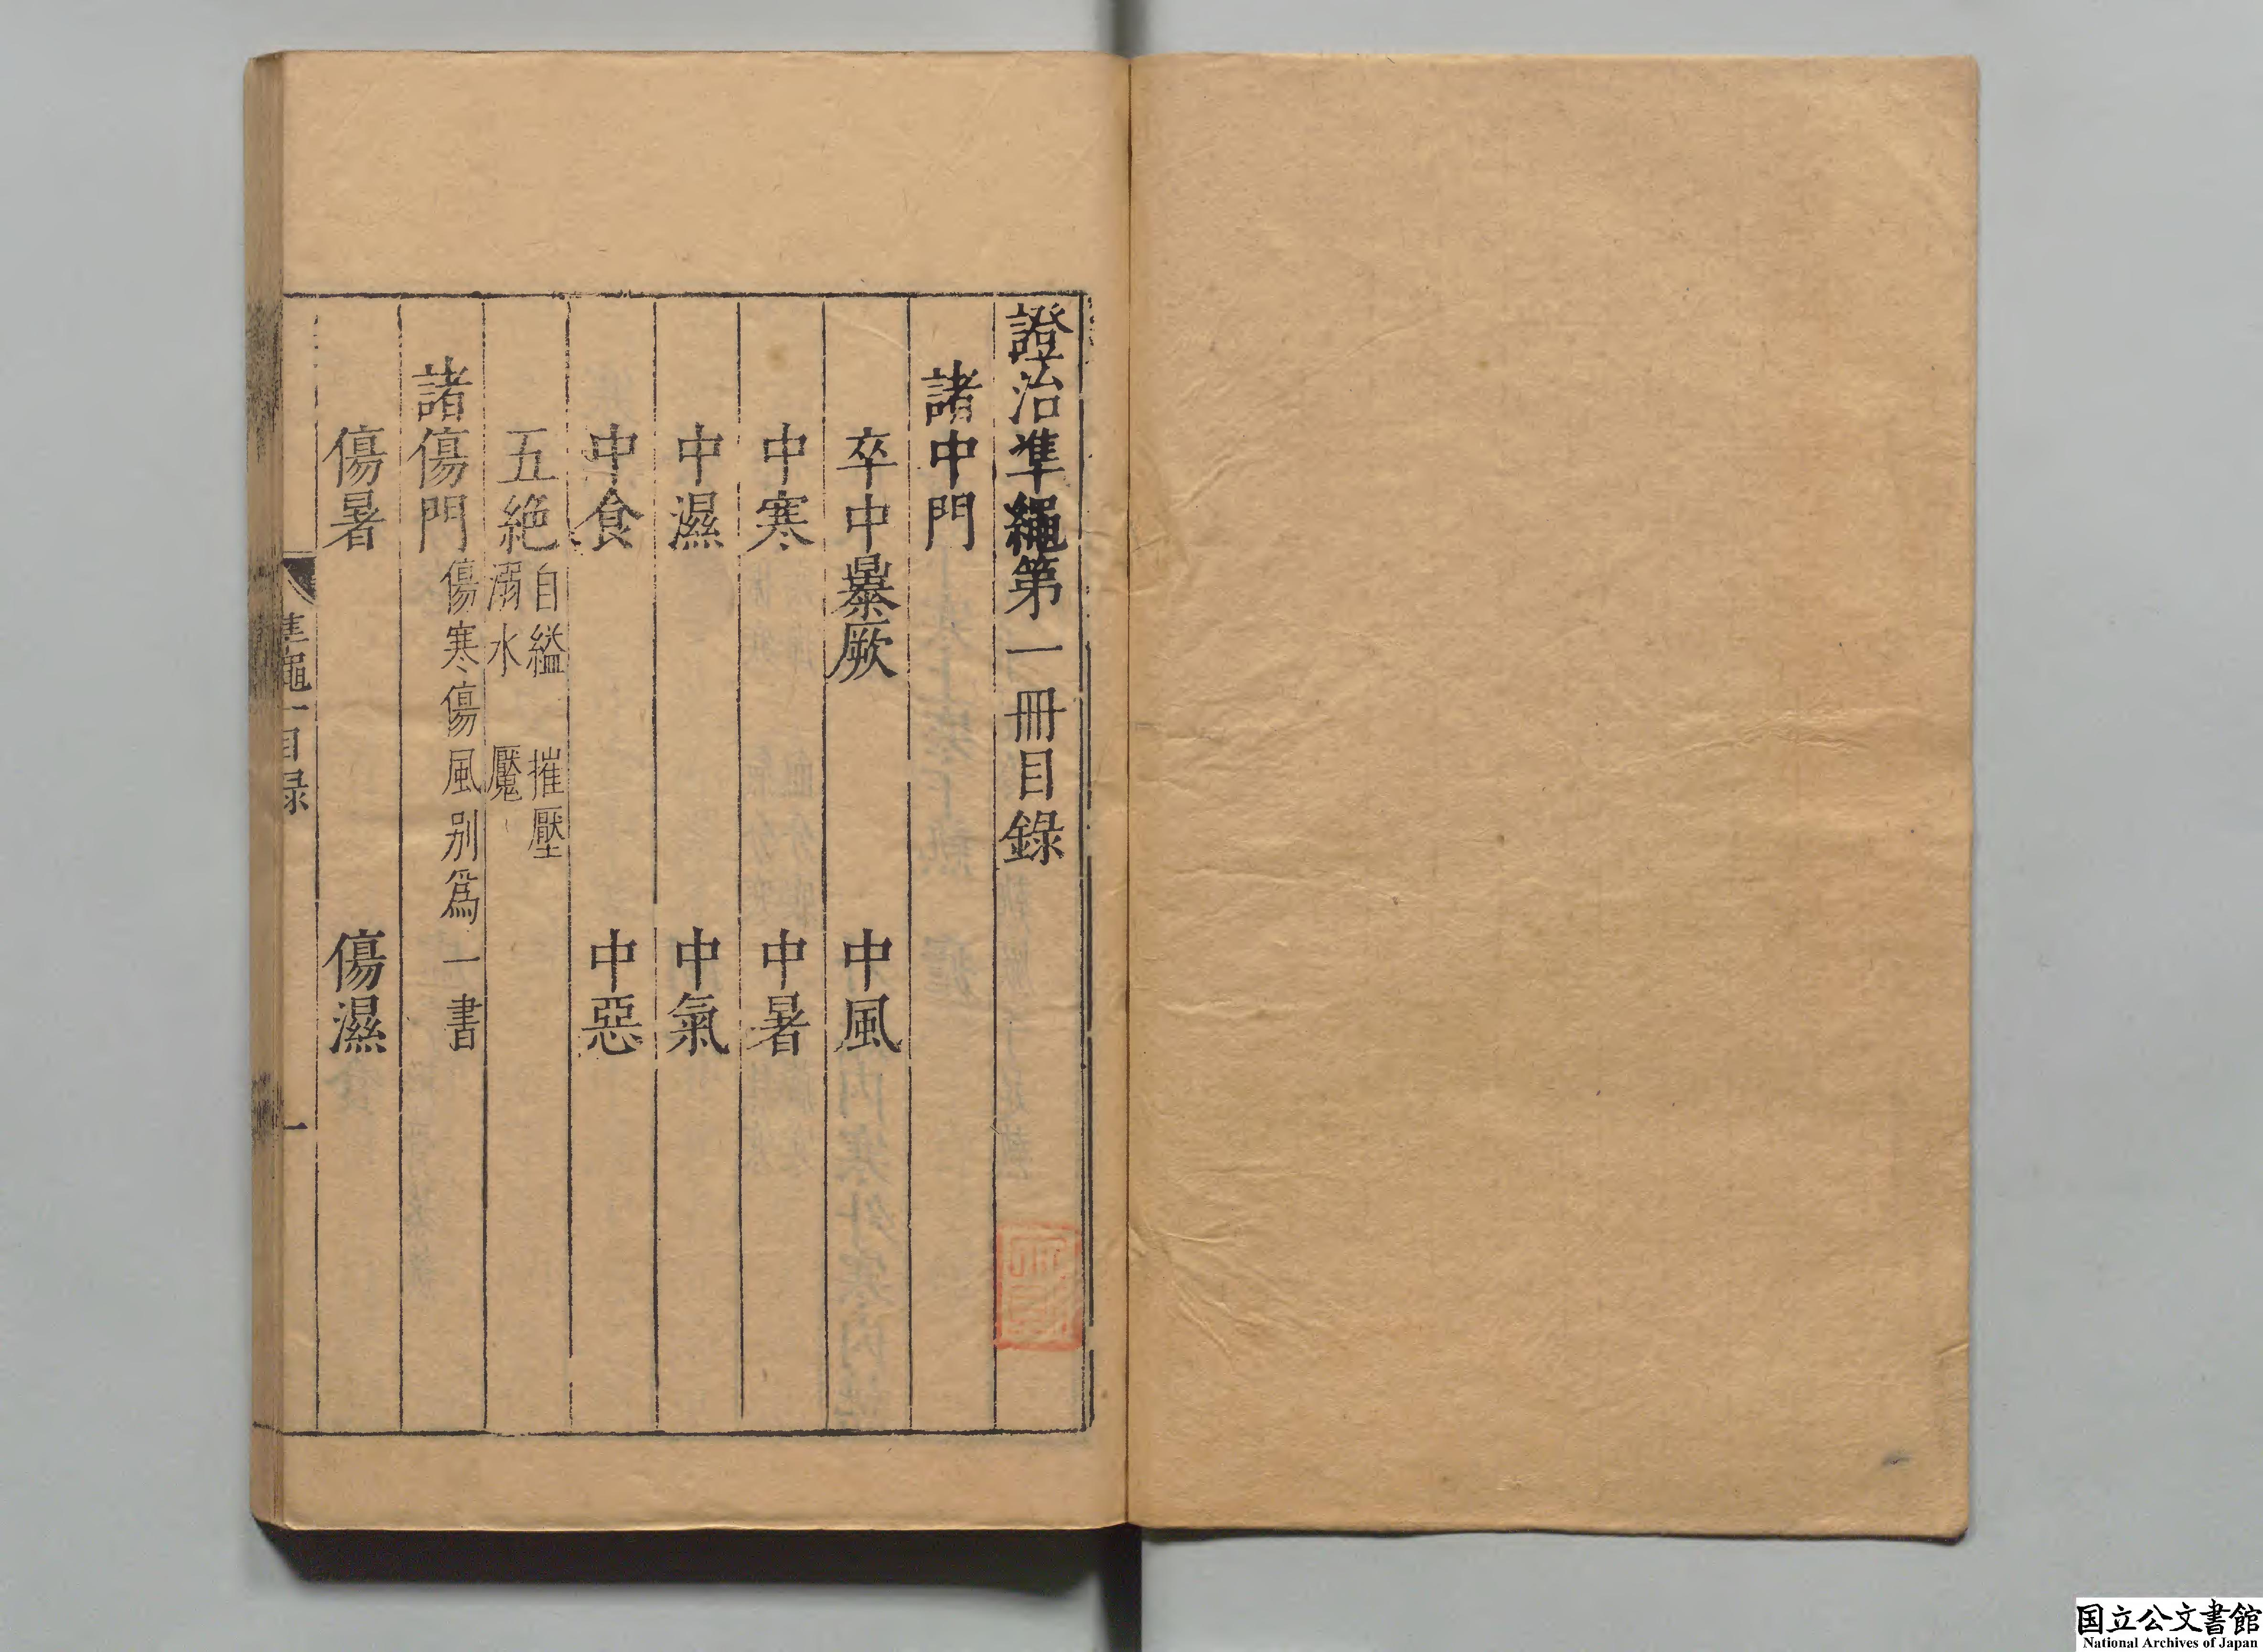 證治準繩第一冊目錄
諸中門
卒中暴厥　中風
中寒　中暑
中濕　中氣
中食　中惡
五絶　自縊　摧壓
溺水　魘
諸傷門　傷寒傷風別爲一書
傷暑　傷濕
準繩一目録　一
国立公文書館
National Archives of Japan